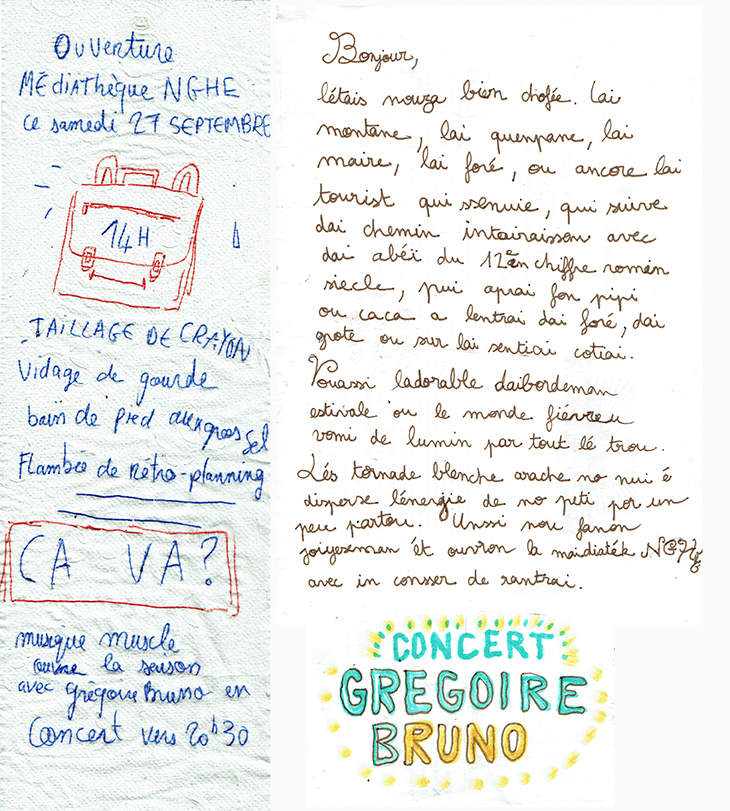 Ouventure
MÉdiAthèque NGHE
ce samedi 27 SEPTEMBRE
14H
TAILLAGE DE CRAYON
Vidage de gourde
bain de pied aux gros sel
Flambée de rétro-planning
CA VA?
musique muscle
ouvre la saison
avec Grégoire Bruno en
Concert vers 20h30
Bonjour,
létais nouza bien chofée. Lai
montane, lai quenpane, lai
maire, lai foré, ou ancore lai
tourist qui ssenuie, qui suive
dai chemin intairaisson avec
dai abéi du 12èn chiffre romin
siecle, pui aprai fon pipi
ou caca a lentrai dai foré, dai
grote ou sur lai sentiai cotiai.
Vouassi ladorable daibordeman
estivale ou le monde fiévreu
vomi de lumin par tout lé trou.
Lés tornade blanche arache no nui é
disperse lénergie de no peti por un
peu partou. Unssi nou fanon
joiyezeman ét ouvron la maidiaték NGHE
avec in consser de rantrai.
CONCERT
GREGOIRE
BRUNO